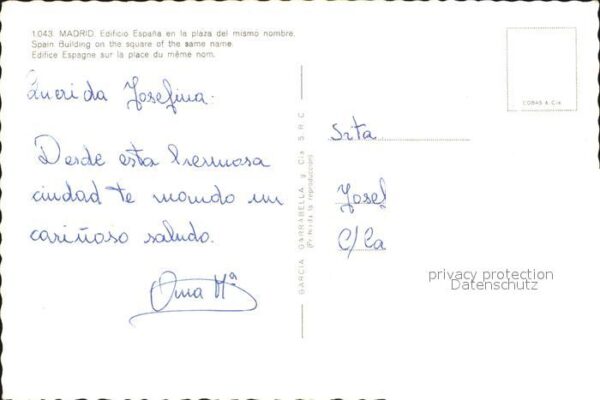 1.043. MADRID. Edificio España en la plaza del mismo nombre.
Spain Building on the square of the same name.
Edifice Espagne sur la place du même nom.
Querida Josefina.
Desde esta hermosa
ciudad te mando un
cariñoso saludo.
Ana Mª
GARCIA GARRABELLA y Cía. S.R.C.
(Prohibida la reproducción)
COBAS & Cía
Srta
Josef
C/ La
privacy protection
Datenschutz